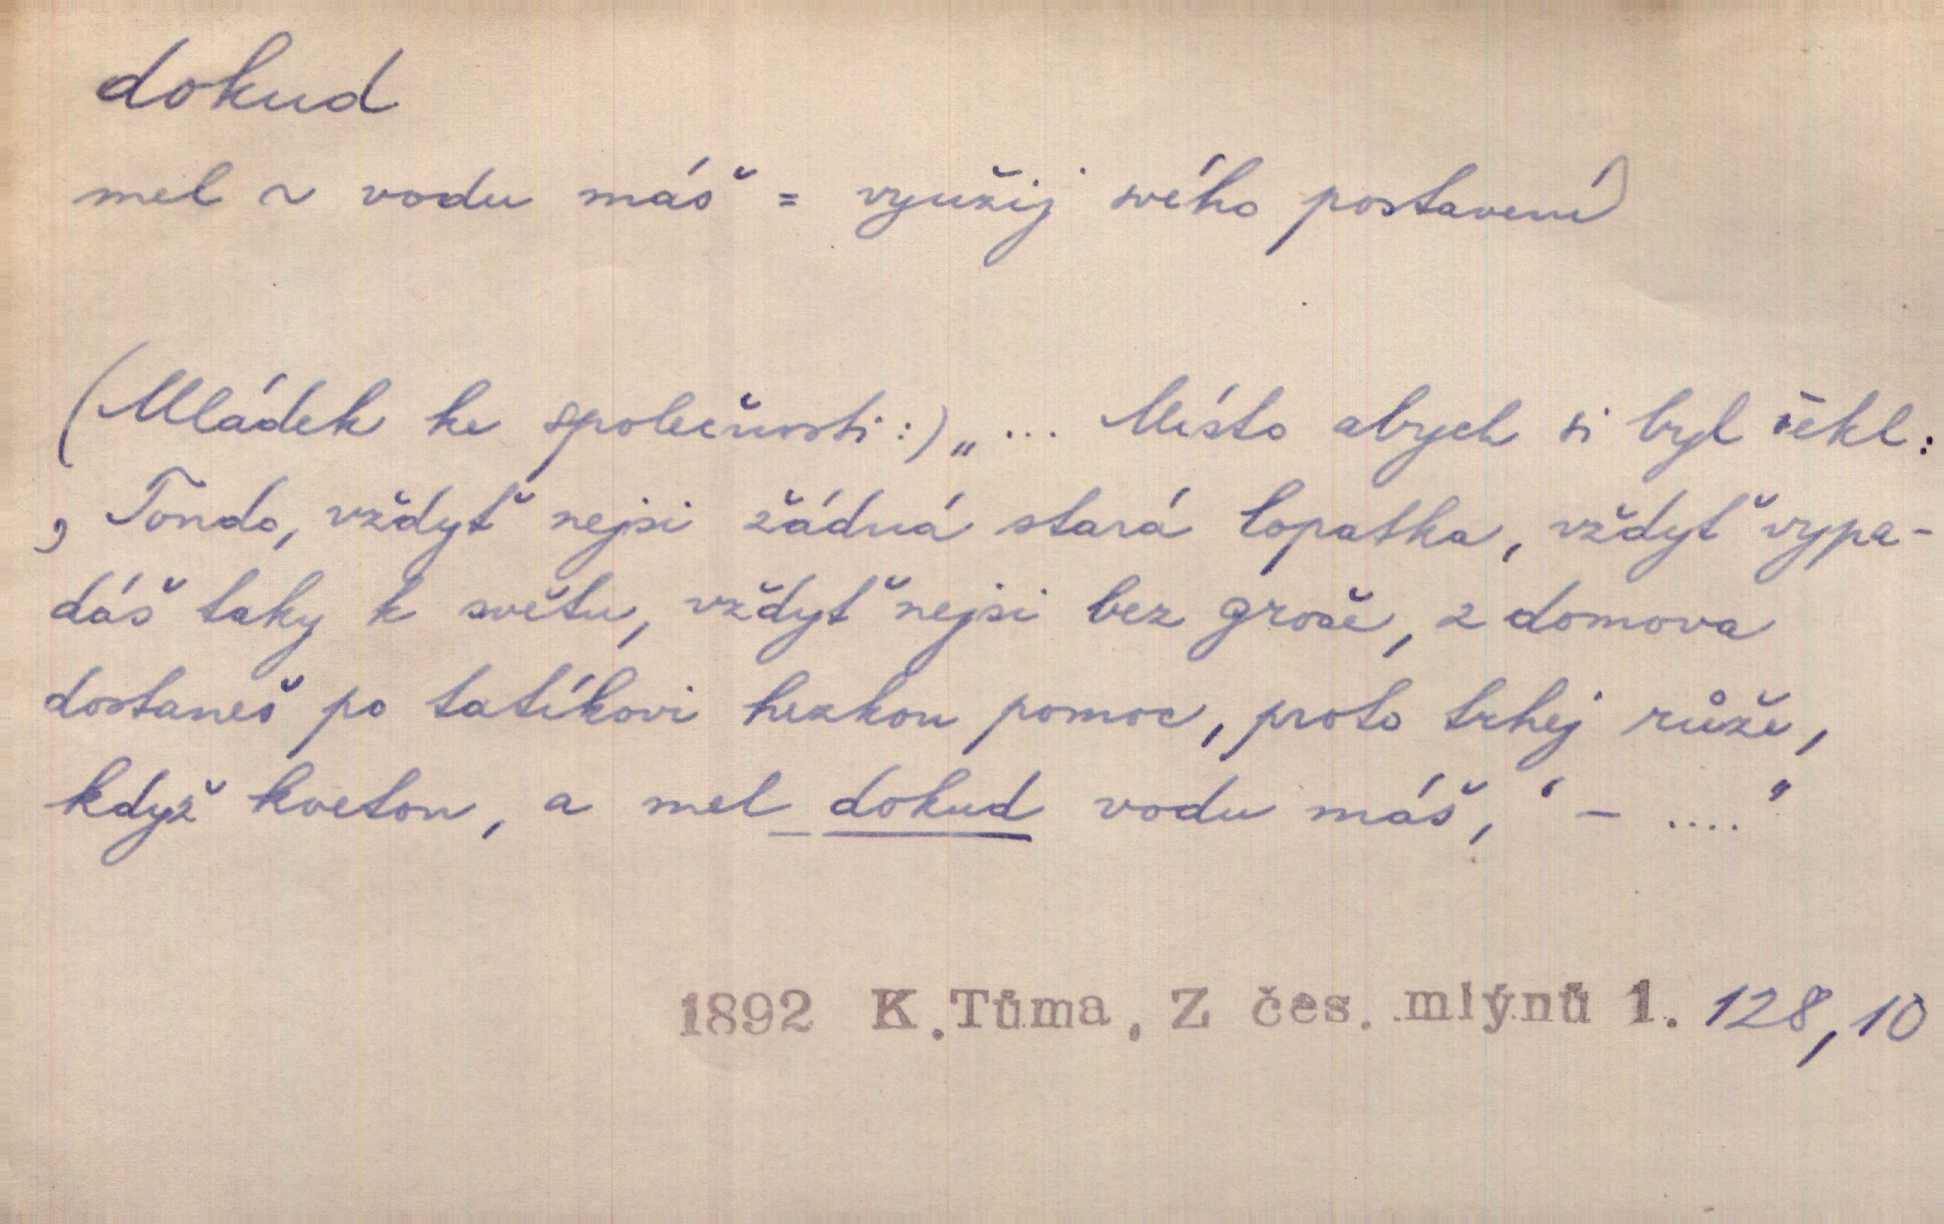 dokud
mel ~ vodu máš = využij svého postavení)
(Mládek ke společnosti:) „... Místo abych si byl řekl:
‚Tondo, vždyť nejsi žádná stará lopatka, vždyť vypa-
dáš taky k světu, vždyť nejsi bez groše, z domova
dostaneš po tatíkovi hezkou pomoc, proto trhej růže,
když kvetou, a mel dokud vodu máš,‘ – ...."
1892 K.Tůma, Z čes. mlýnů 1. 128,10